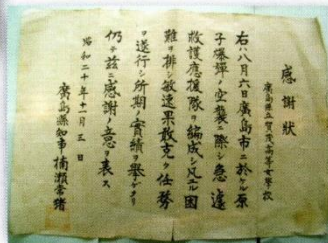 感謝狀
廣島縣立賀茂高等女學校
右ハ八月六日廣島市ニ於ケル原
子爆彈ノ空襲ニ際シ急遽
救護應援隊ヲ編成シ凡ユル困
難ヲ排シ敏速果敢克ク任務
ヲ遂行シ所期ノ實績ヲ擧ゲタリ
仍テ茲ニ感謝ノ意ヲ表ス
昭和二十年十一月三日
廣島縣知事楠瀨常猪